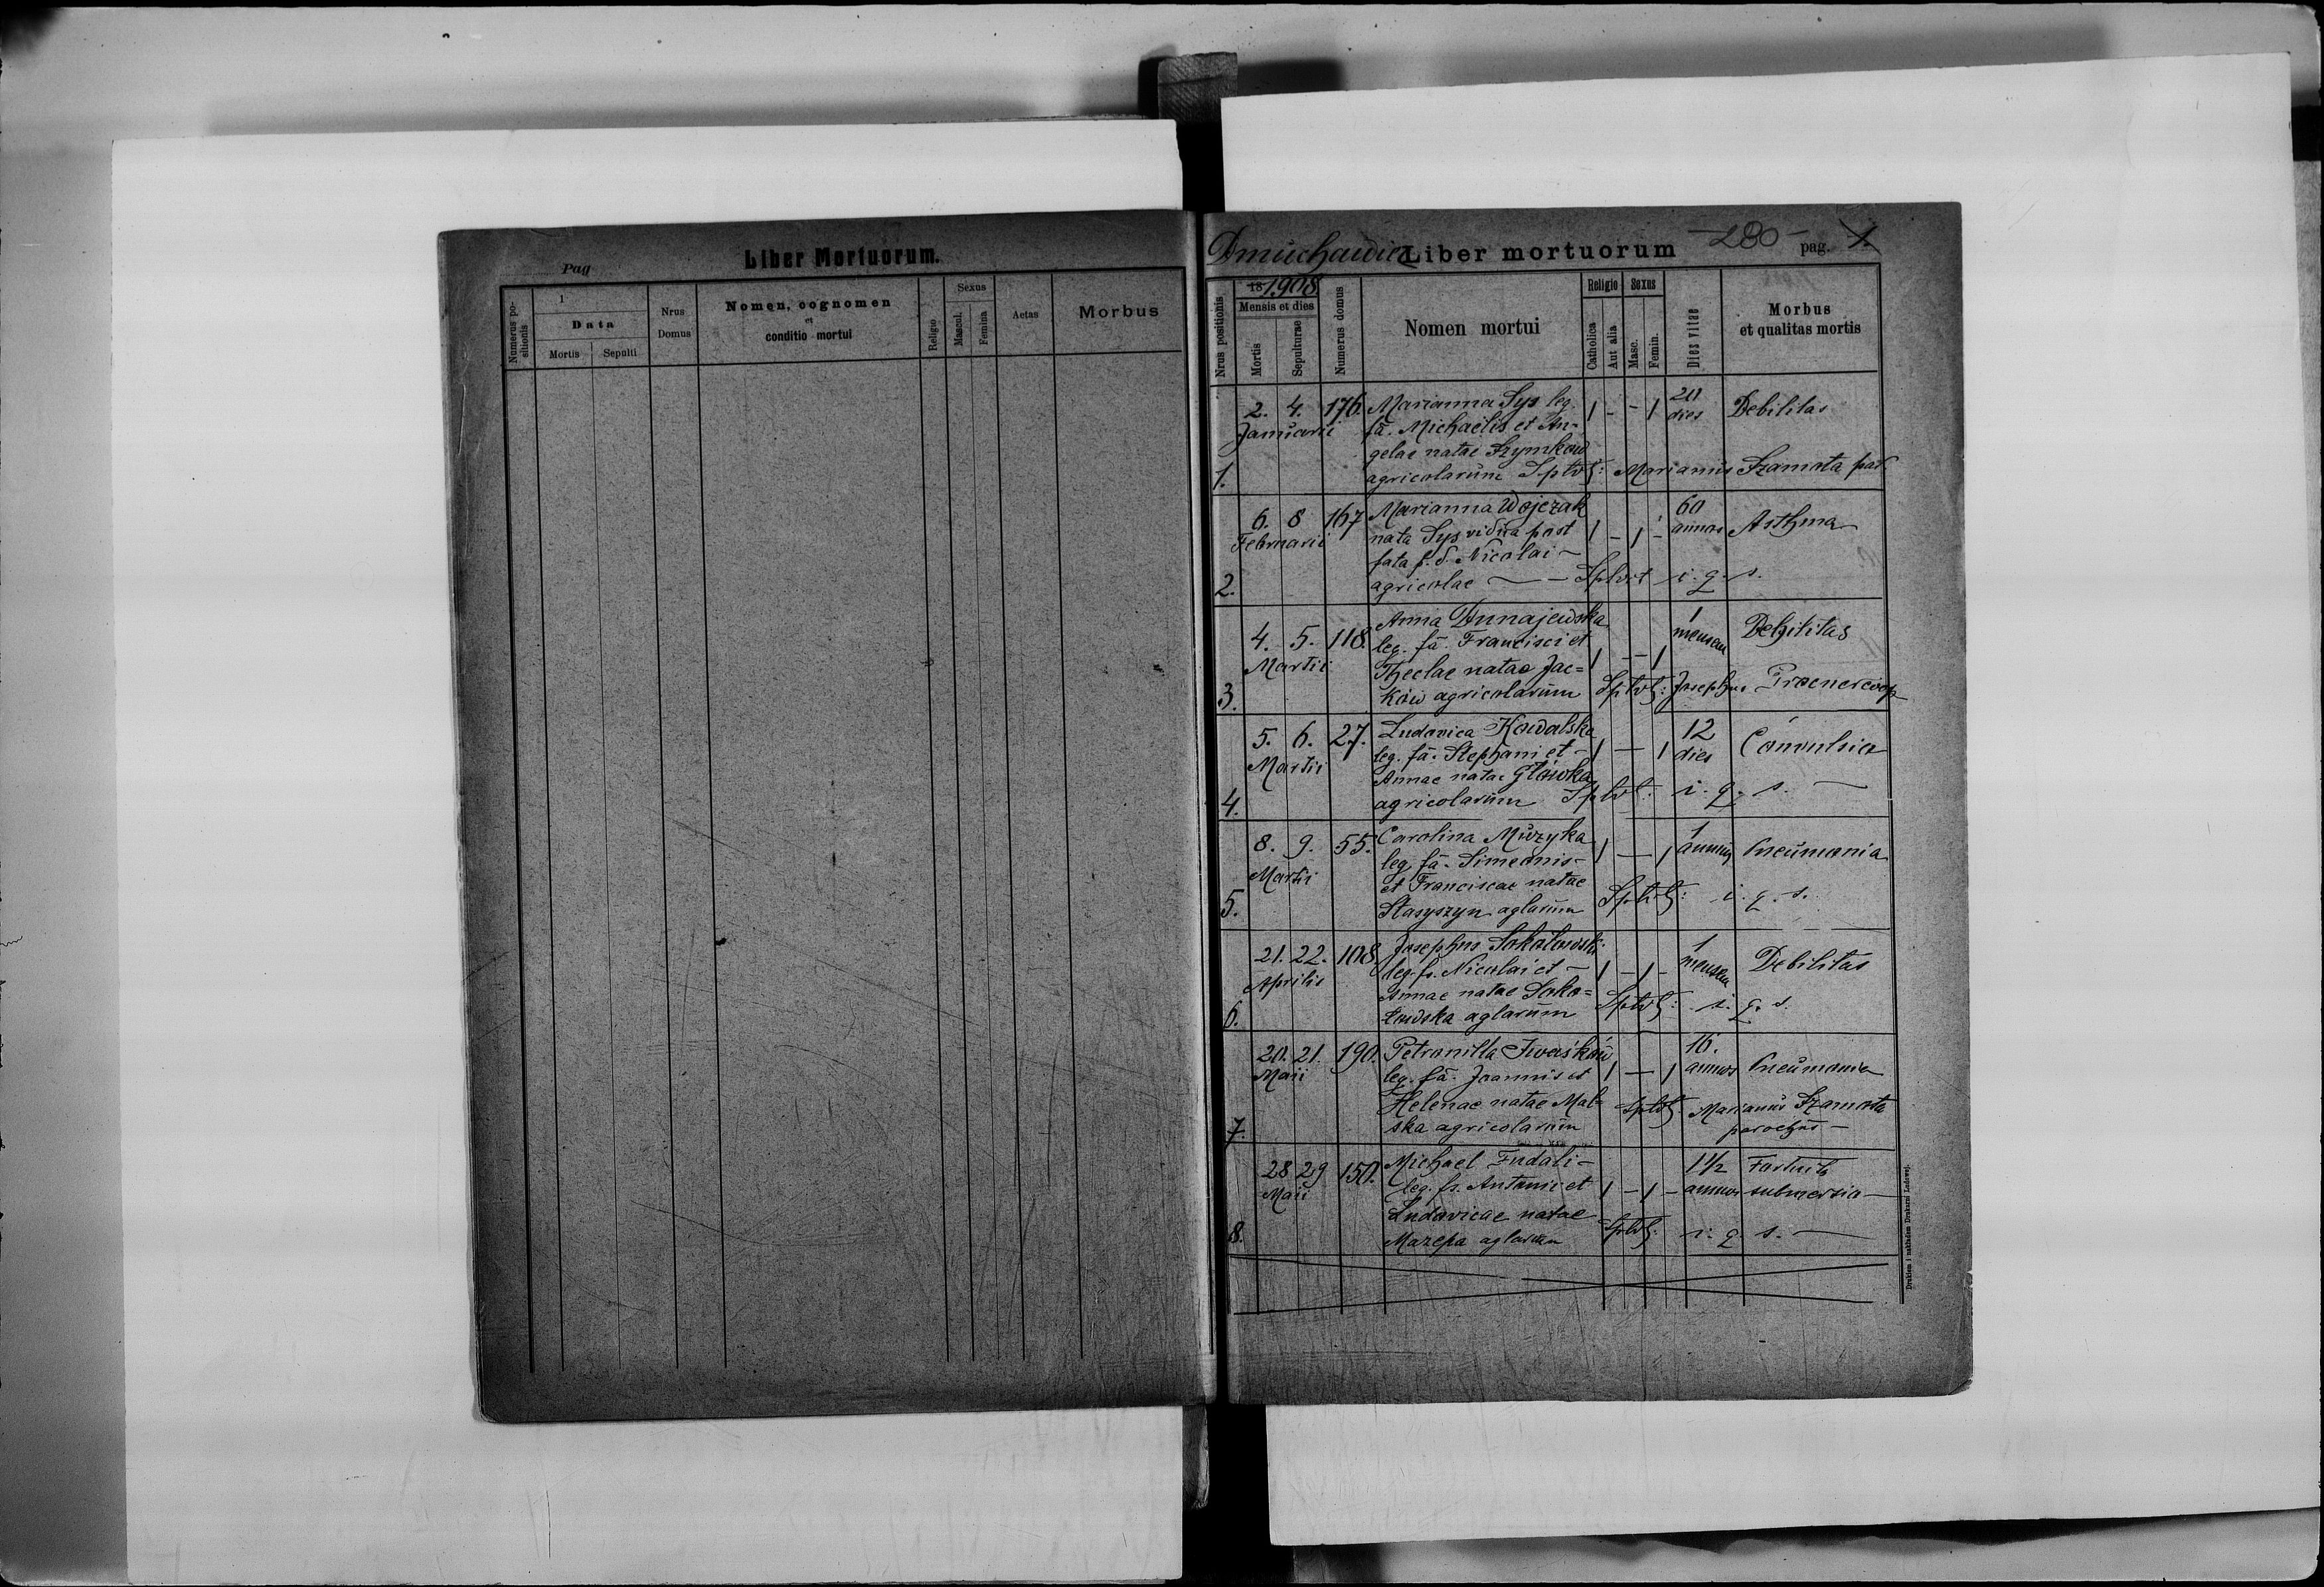 Pag
Liber Mortuorum.
Numerus positionis
1
Data
Mortis
Sepulti
Nrus
Domus
Nomen, cognomen
et
conditio mortui
Religio
Sexus
Mascul.
Femina
Aetas
Morbus
Liber mortuorum
-280-
pag. 1.
Nrus positionis
18 1908
Mensis et dies
Mortis
Sepulturae
Numerus domus
Nomen mortui
Religio
Catholica
Aut alia
Sexus
Masc.
Femin.
Dies vitae
Morbus
et qualitas mortis
1.
2. 4. 176. Marianna Sys leg. 1 - - 1 20 dies Debilitas
Januarii fa. Michaelis et An-
gelae natae Szymków
agricolarum Spltvt: Marianus Szamota par
2.
6. 8 167 Marianna Wojczak 60
Februarii nata Sys vidua post 1 - 1 - annos Asthma
fata p. d. Nicolai -
agricolae - Spltvt i. q. s.
3.
4. 5. 118. Anna Dunajewska 1 mensem Debilitas
Martii leg. fa. Francisci et 1 - - 1
Theclae natae Jac=
ków agricolarum Spltvt: Josephus
4.
5. 6. 27. Ludovica Kowalska 12
Martii leg. fa. Stephani et - 1 - 1 dies Convulsia
Annae natae Główka
agricolarum Spltvt: i. q. s.
5.
8. 9. 55. Carolina Muzyka 1
Martii leg. fa. Simeonis - 1 - 1 annum Pneumonia
et Franciscae natae
Stasyszyn aglarum Spltvt: i. q. s.
6.
21. 22. 108. Josephus Sokołowski 1
Aprilis leg. fs. Nicolai et - 1 - 1 - mensem Debilitas
Annae natae Soko=
łowska aglarum Spltvt: i. q. s.
7.
20. 21. 190. Petronilla Iwaśków 16.
Maii leg. fa. Joannis et 1 - 1 annos Pneumonia
Helenae natae Mal-
ska agricolarum Spltvt Marianus Szamota
parochus -
8.
28 29 150. Michael Fudali - 1 1/2
Maii leg. fs. Antonii et 1 - 1 - annos submersio -
Ludovicae natae
Mazepa aglarum Spltvt: i. q. s. -
Drukiem i nakładem Drukarni Ludowej.